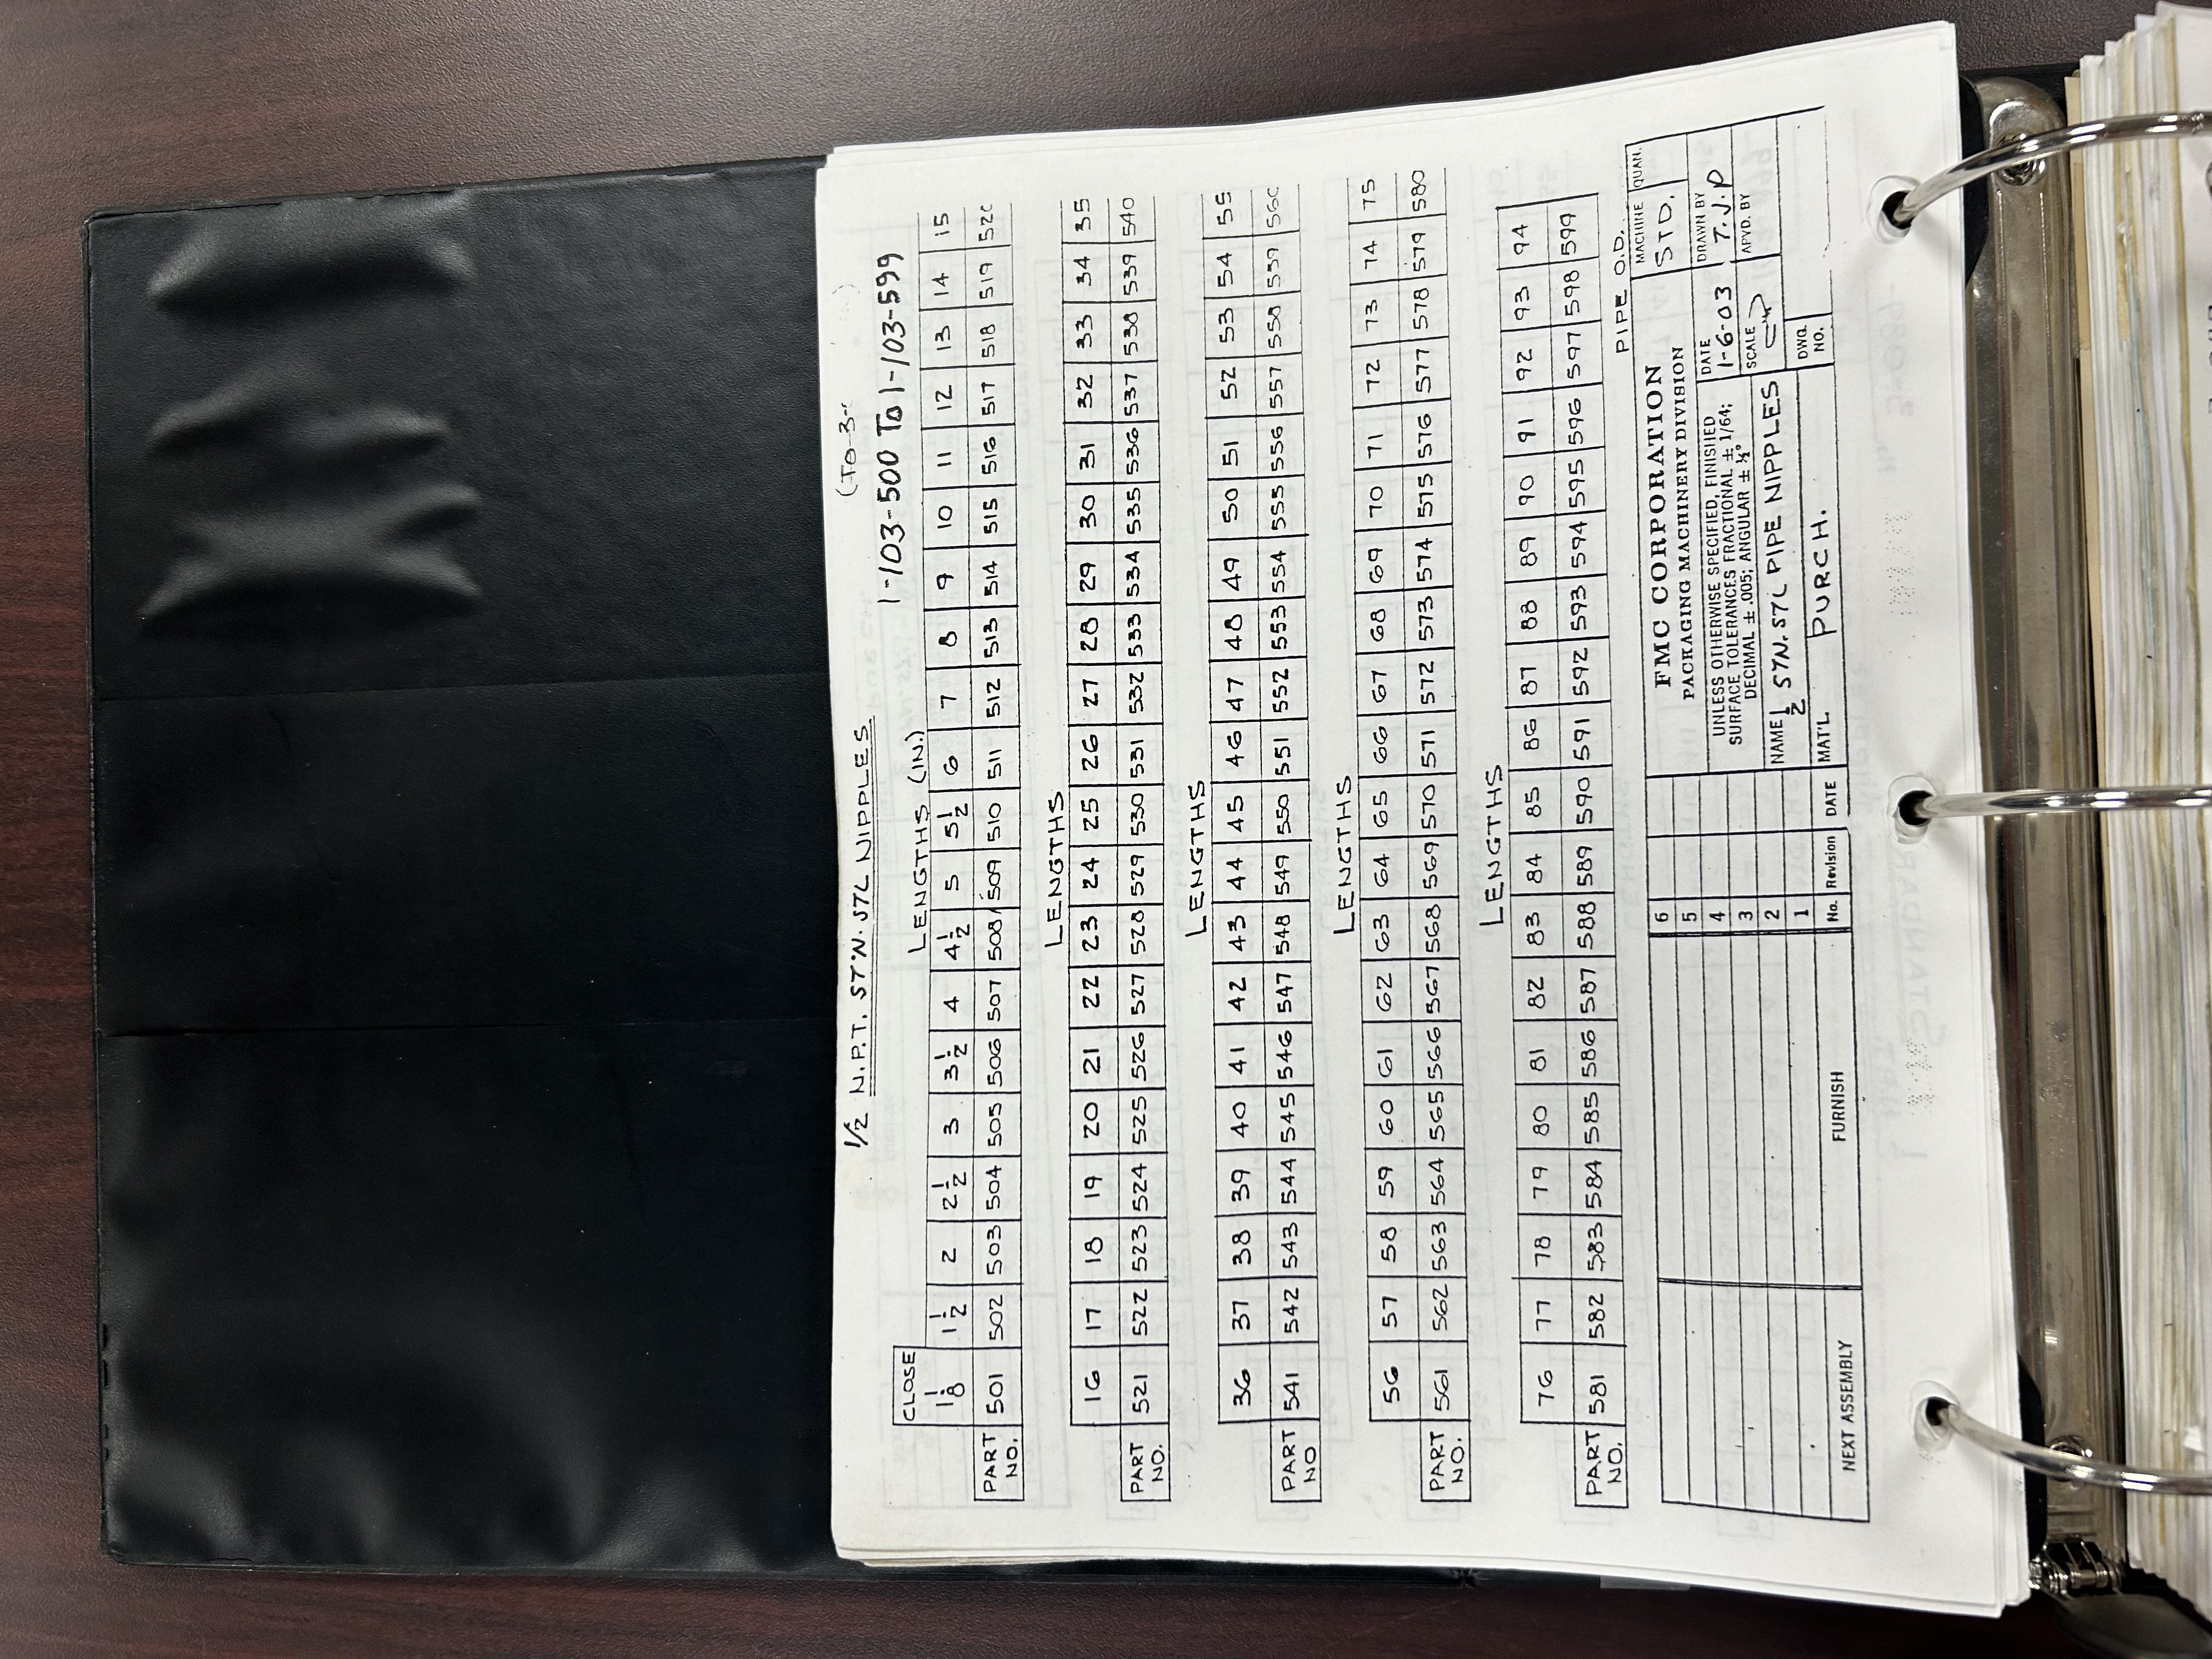 1/2 N.P.T. ST'N. STL NIPPLES.
(TO 3-
1-103-500 TO 1-103-599
CLOSE
LENGTHS (IN.)
1 1/8 1 1/2 2 2 1/2 3 3 1/2 4 4 1/2 5 5 1/2 6 7 8 9 10 11 12 13 14 15
PART NO. 501 502 503 504 505 506 507 508 509 510 511 512 513 514 515 516 517 518 519 520
LENGTHS
16 17 18 19 20 21 22 23 24 25 26 27 28 29 30 31 32 33 34 35
PART NO. 521 522 523 524 525 526 527 528 529 530 531 532 533 534 535 536 537 538 539 540
LENGTHS
36 37 38 39 40 41 42 43 44 45 46 47 48 49 50 51 52 53 54 55
PART NO 541 542 543 544 545 546 547 548 549 550 551 552 553 554 555 556 557 558 559 560
LENGTHS
56 57 58 59 60 61 62 63 64 65 66 67 68 69 70 71 72 73 74 75
PART NO. 561 562 563 564 565 566 567 568 569 570 571 572 573 574 575 576 577 578 579 580
LENGTHS
76 77 78 79 80 81 82 83 84 85 86 87 88 89 90 91 92 93 94
PART NO. 581 582 583 584 585 586 587 588 589 590 591 592 593 594 595 596 597 598 599
PIPE O.D.
6
5
4
3
2
1
No. Revision DATE
NEXT ASSEMBLY
FURNISH
FMC CORPORATION
PACKAGING MACHINERY DIVISION
UNLESS OTHERWISE SPECIFIED, FINISHED
SURFACE TOLERANCES FRACTIONAL ± 1/64;
DECIMAL ± .005; ANGULAR ± ½°
NAME 1/2 STN. STL PIPE NIPPLES
MAT'L. PURCH.
MACHINE STD.
QUAN.
DATE 1-6-03
DRAWN BY T.J.P
SCALE
APVD. BY
DWG. NO.